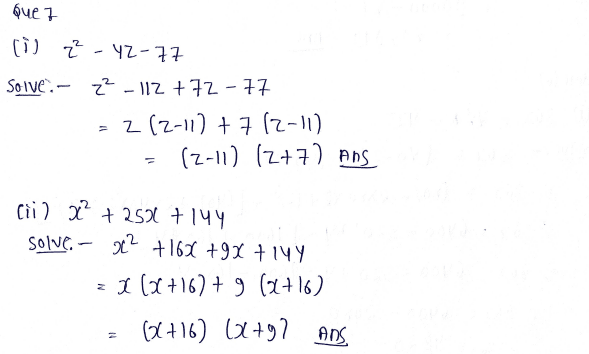 Que 7
(i) z² - 4z - 77
Solve:- z² - 11z + 7z - 77
= z (z-11) + 7 (z-11)
= (z-11) (z+7) Ans
(ii) x² + 25x + 144
Solve:- x² + 16x + 9x + 144
= x (x+16) + 9 (x+16)
= (x+16) (x+9) Ans